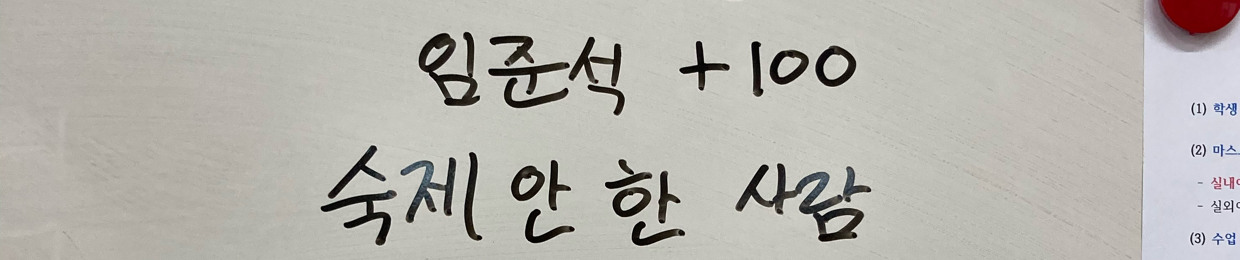 임준석 +100
숙제 안 한 사람
(1) 학생
(2) 마스
- 실내
- 실외
(3) 수업